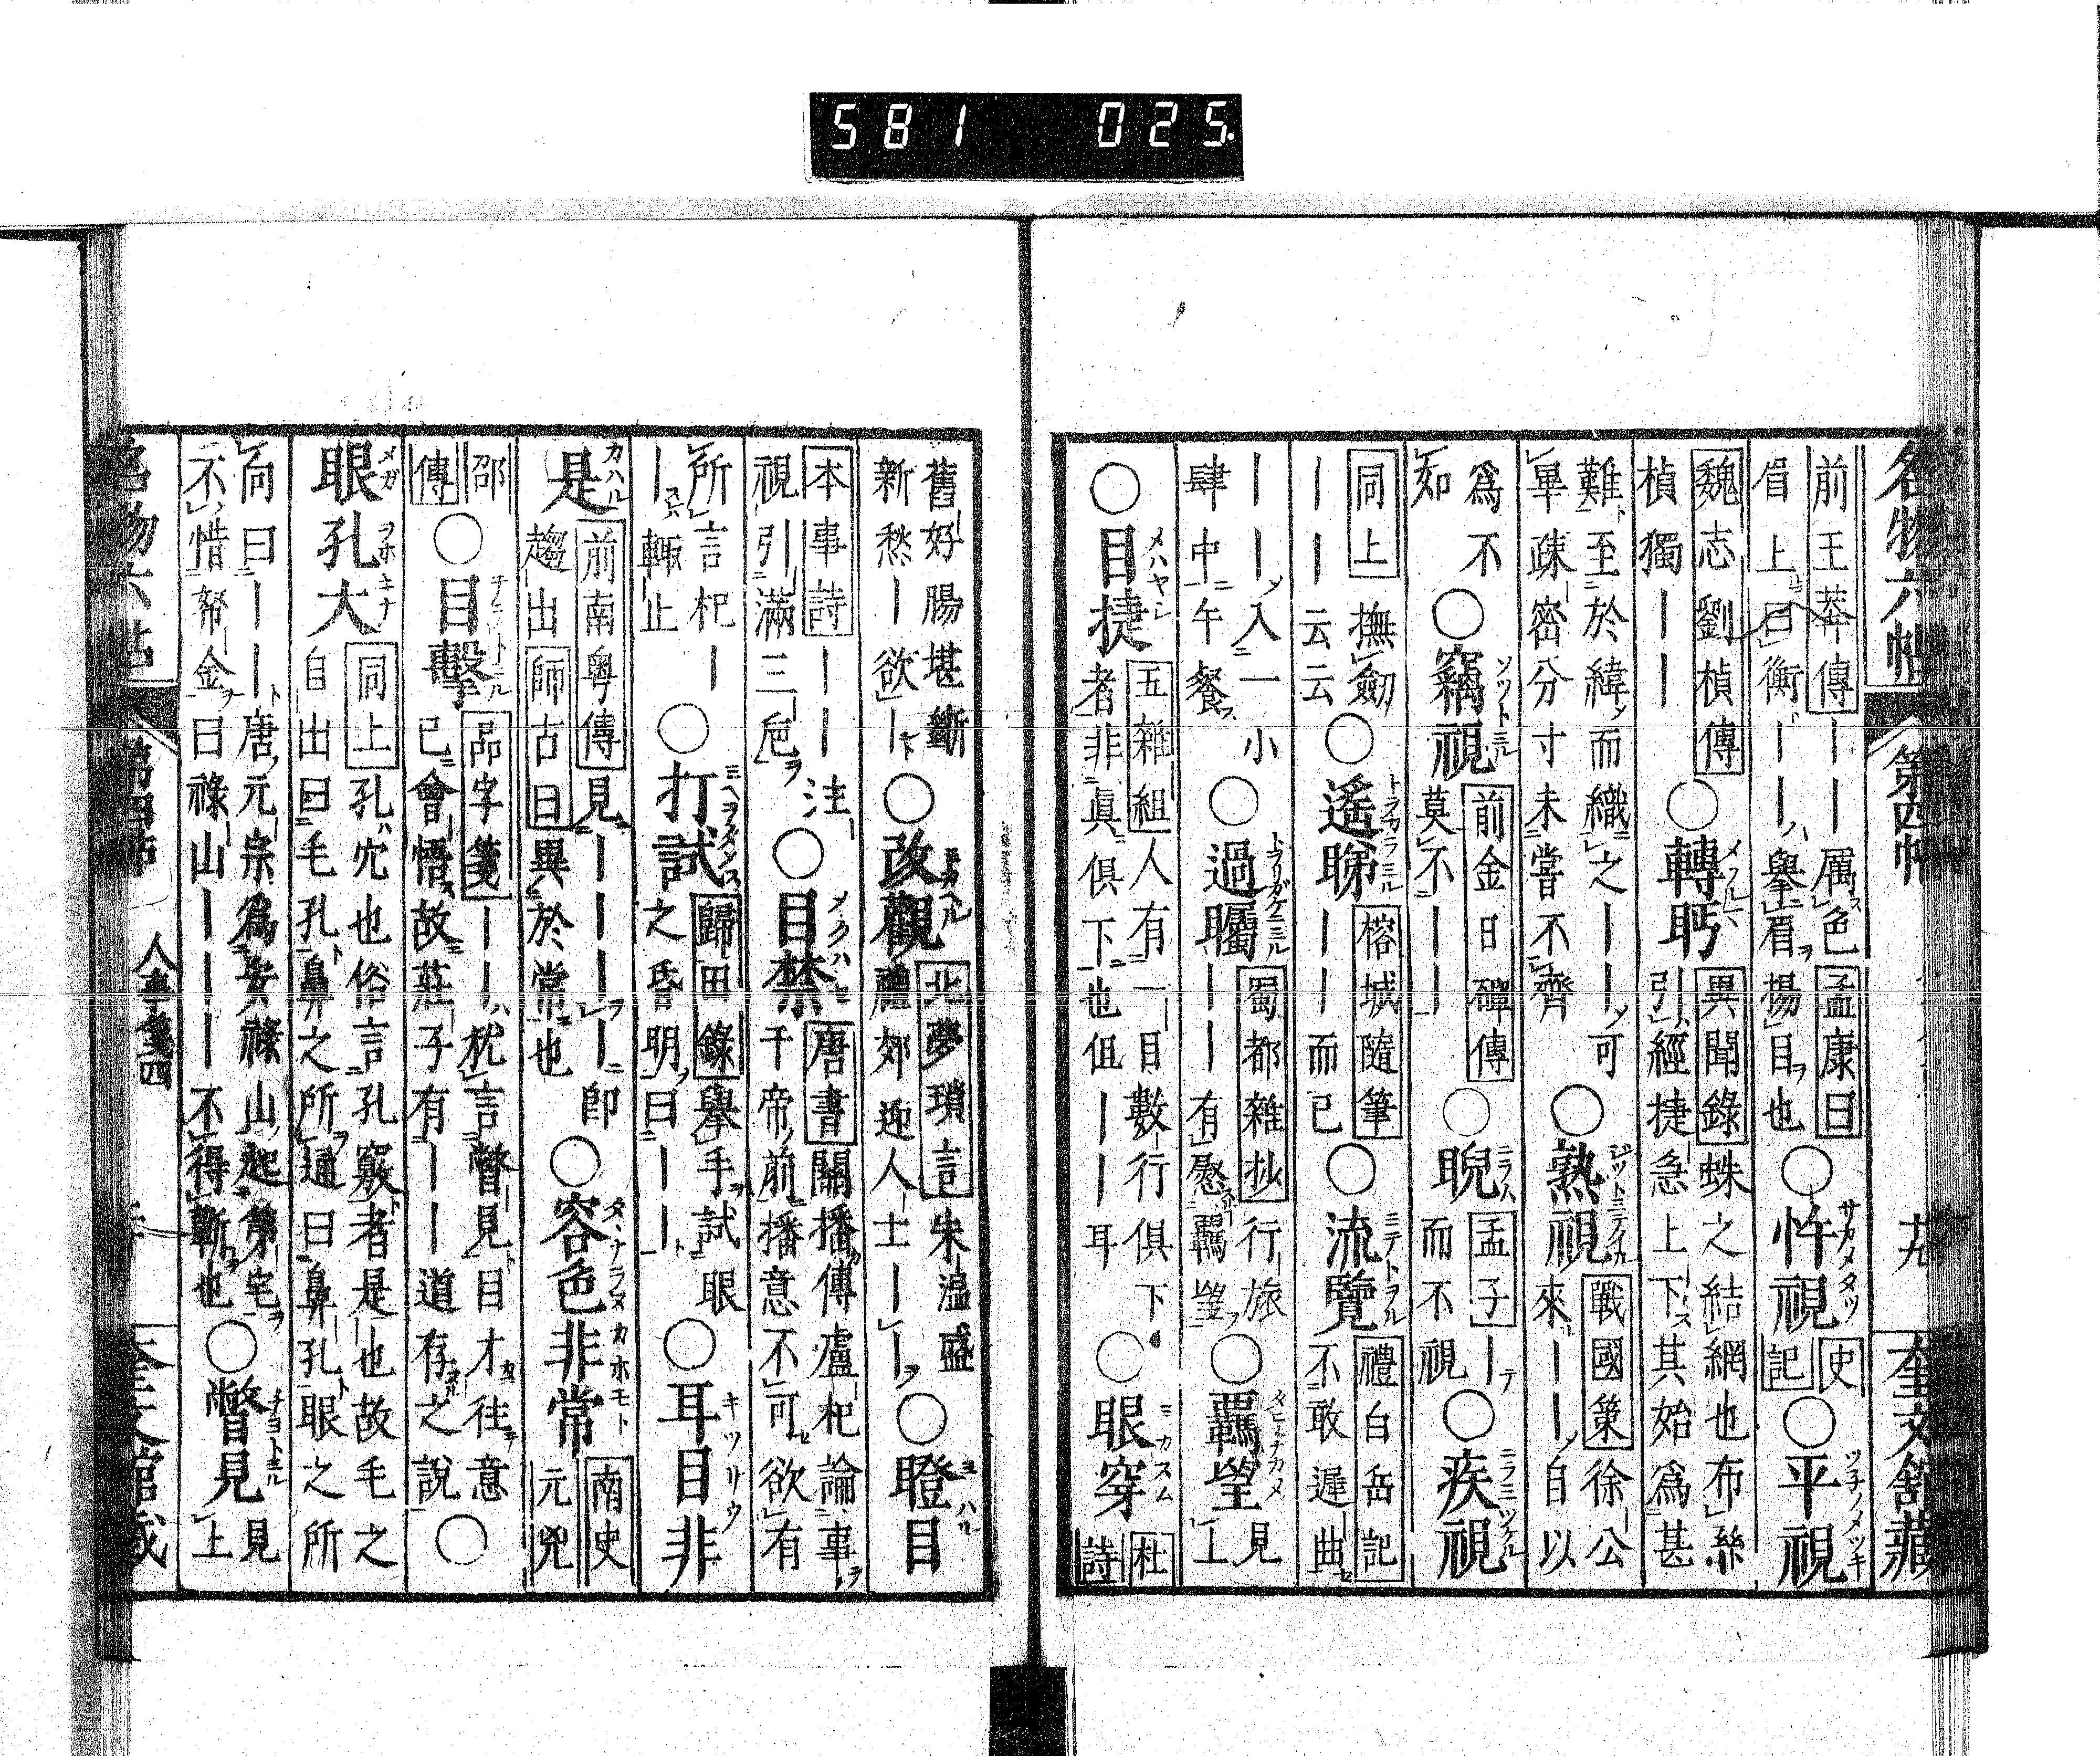 名物六帖 第四帖 十九 奎文館藏
前王莽傳｜｜厲色孟康曰
眉上曰衡｜｜舉眉揚目也
○忤視 史記 ○平視
魏志劉楨傳
楨獨｜｜
○轉眄
異聞錄蛛之結網也布絲
引經捷急上下其始爲甚
難至於緯而織之｜｜可
畢疎密分寸未嘗不齊
○熟視
戰國策徐公
來｜｜自以
爲不
如
○竊視
前金日磾傳
莫不｜｜
○睨
孟子｜
而不視
○疾視
同上撫劔
｜｜云云
○遙睇
榕城隨筆
｜｜而已
○流覽
禮白岳記
不敢遲曲
｜｜入一小
肆中午餐
○過矚
蜀都雜抄行旅
｜｜有慰羈望
○羈望
見
上
○目捷
五雜組人有一目數行俱下
者非眞俱下也但｜｜耳
○眼穿
杜
詩
舊好腸堪斷
新愁｜欲｜
○改觀
北夢瑣言朱温盛
禮郊迎人士｜｜
○瞪目
本事詩｜｜注
視引滿三巵
○目禁
唐書關播傳盧杞論事
千帝前播意不可欲有
所言杞｜
｜輒止
○打試
歸田錄舉手試眼
之昏明曰｜｜
○耳目非
是
前南粤傳見｜｜｜｜卽
趨出師古曰異於常也
○容色非常
南史
元兇
邵
傳
○目擊
品字箋｜｜枕言瞥見目才往意
已會悟故莊子有｜｜道存之説
○
眼孔大
同上孔穴也俗言孔竅者是也故毛之
自出曰毛孔鼻之所通曰鼻孔眼之所
向曰｜｜｜唐元宗爲安祿山起第宅
不惜帑金曰祿山｜｜｜不得也
○瞥見
見
上
名物六帖 第四帖 人事箋四 奎文館藏
581 025